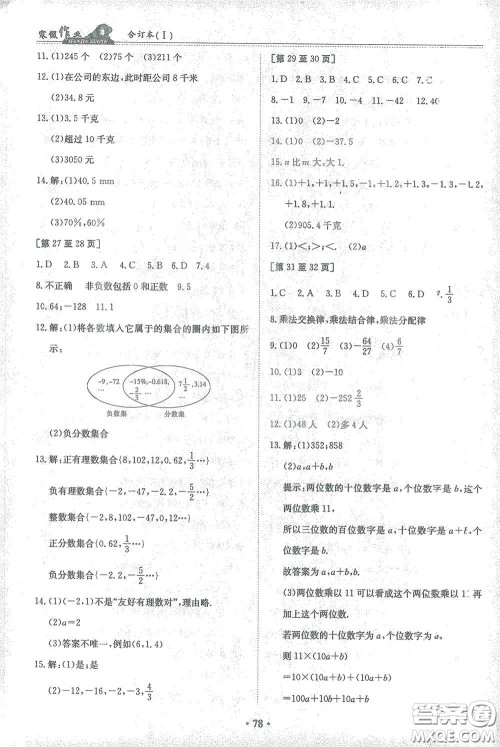 寒假作业 合订本(Ⅰ)
11.(1)245个 (2)75个 (3)211个
12.(1)在公司的东边,此时距公司8千米
(2)34.8元
13.(1)3.5千克
(2)超过10千克
(3)3050元
14.解:(1)40.5 mm
(2)40.05 mm
(3)70%,60%
[第27至28页]
1.D 2.B 3.A 4.C 5.D 6.C 7.A
8.不正确 非负数包括0和正数 9.5
10.64;-128 11.1
12.解:(1)将各数填入它属于的集合的圈内如下图所
示:
-9,-72 -15%,-0.618, -2/3 7 1/2,3.14
负数集 分数集
(2)负分数集合
13.解:正有理数集合{8,102,12,0.62,1/3…}
负有理数集合{-2,-47,-0.2,-5/2…}
整数集合{-2,8,102,-47,0,12…}
正分数集合{0.62,1/3…}
负分数集合{-0.2,-5/2…}
14.(1)(-2,1)不是“友好有理数对”,理由略.
(3)答案不唯一,例如(6,1.4)
15.解:(1)是;是
(2)-2,-12,-16,-2,-3,4/9
[第29至30页]
1.D 2.B 3.C 4.D 5.B 6.D 7.A
8.-1 9.-7 10.-4 11.-42 12.40
13.(1)0 (2)-2
14.(1)-30 (2)-37.5
15.n比m大,大1.
16.(1)+1,+1,+1.5,-1,+1.2,+1.3,-1.3,-1.2,
+1.8,+1.1
(2)905.4千克
17.(1)<;>;<.
[第31至32页]
1.C 2.C 3.A 4.B 5.D 6.-2 7.1/3
8.乘法交换律,乘法结合律,乘法分配律
9.(1)0 (2)15/7 (3)-64/27 (4)6/7
10.(1)31 (2)-252
12.(1)48人 (2)多4人
13.解:(1)352;858
(2)a,a+b,b
提示:两位数的十位数字是a,个位数字是b,这个两
位数乘11,
所以三位数的百位数字是a,十位数字是a+b,个位数字是b.
故答案为a,a+b,b
(3)两位数乘以11可以看成这个两位数乘以10再
加上这个两位数.
若两位数的十位数字为a,个位数字为b,
则11×(10a+b)
=10(10a+b)+(10a+b)
=100a+10b+10a+b
·78·
答案圈
MXQE.COM